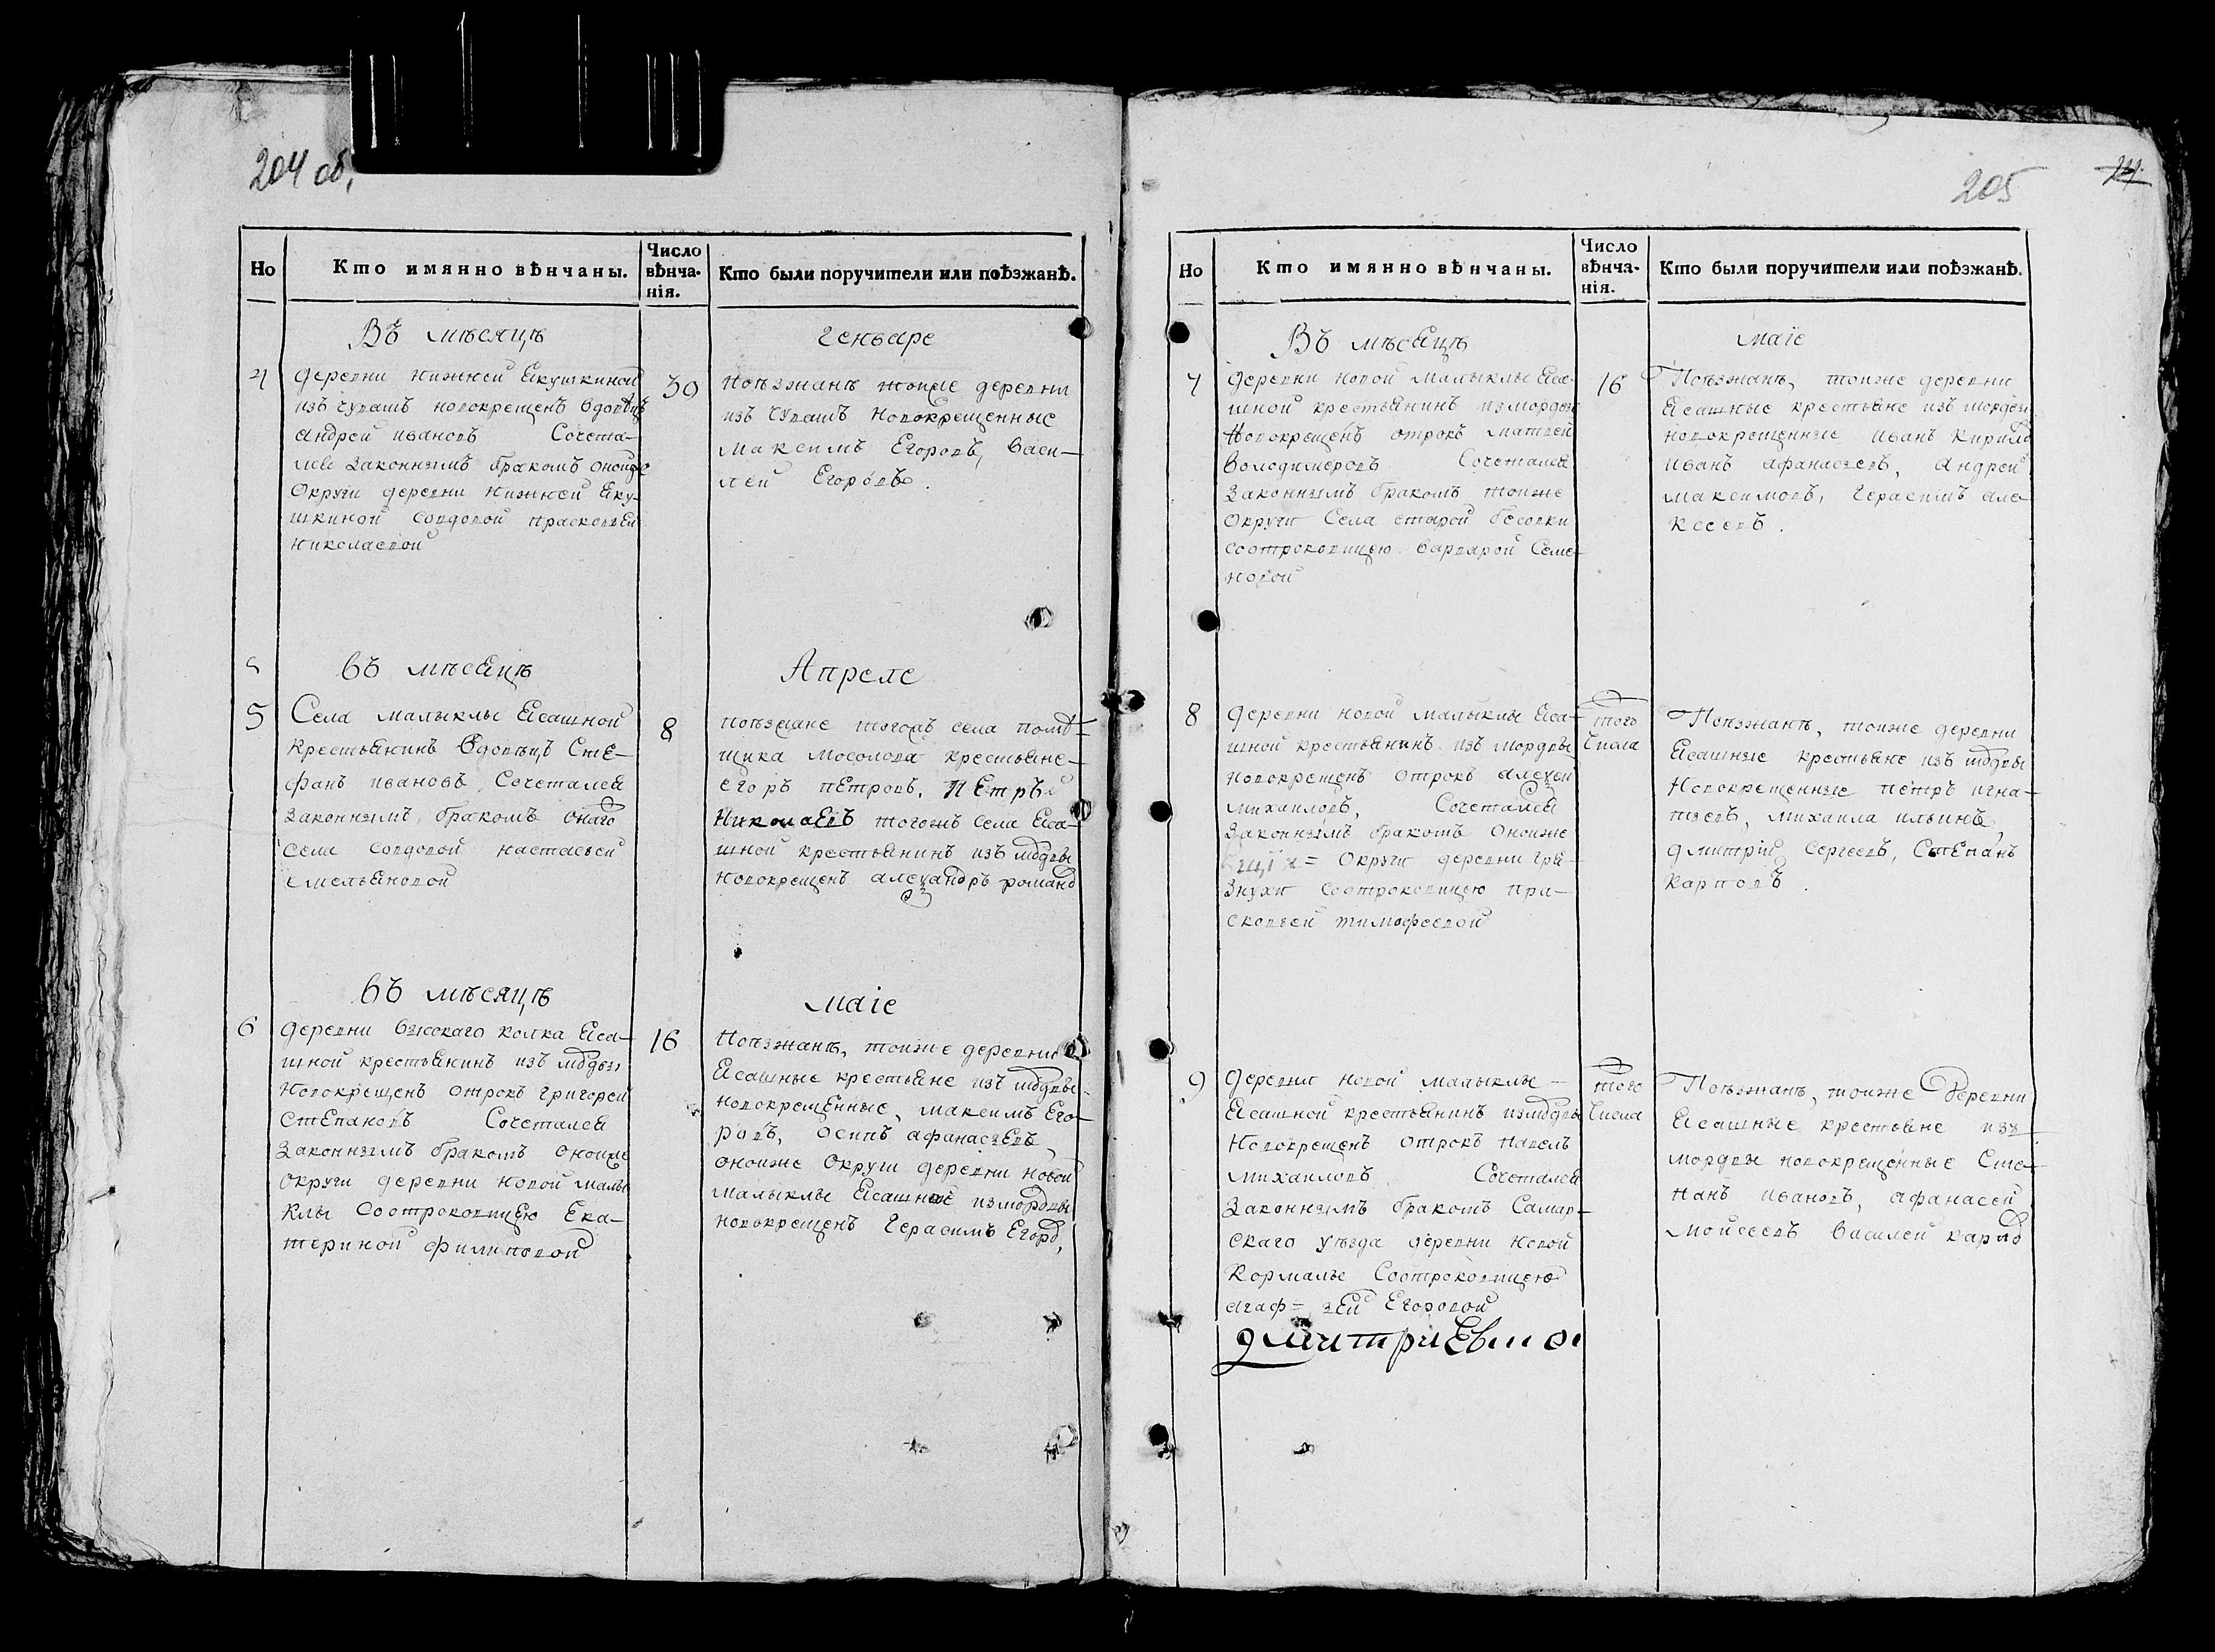 204 об.
Но
Кто имянно вѣнчаны.
Число вѣнча-
нія.
Кто были поручители или поѣзжанѣ.
Въ мѣсяцѣ
генваре
4
деревни нижней Якушкиной
изъ чувашъ новокрещенъ вдовецъ
андрей ивановъ Сочета-
лся законнымъ бракомъ оной же
округи деревни нижней Яку-
шкиной совдовой прасковьей
николаевой
30
поѣзжанѣ тойже деревни
изъ чувашъ новокрещенные
максимъ Егоровъ, васи-
лей Егоровъ.
въ мѣсяцѣ
Апреле
5
Села малыклы Ясашной
крестьянинъ вдовецъ Сте-
фанъ ивановъ Сочетался
законнымъ бракомъ онаго
села совдовой настасьей
Емельяновой
8
поѣзжане тогожъ села помѣ-
щика мосолова крестьяне
егоръ пЕтровъ, пЕтръ
НиколаЕвъ тогожъ села Яса-
шной крестьянинъ изъ мордвы
новокрещенъ алеѯандръ романов
въ мѣсяцѣ
маіе
6
деревни высокаго колка Яса-
шной крестьянинъ изъ мордвы
новокрещенъ отрокъ григорей
стЕпановъ Сочетался
законнымъ бракомъ оной же
округи деревни новой малы
клы Соотроковицею Ека-
териной филиповой
16
Поѣзжанѣ, тойже деревни
Ясашные крестьяне изъ мордвы
новокрещенные, максимъ Его-
ровъ, осипъ афанасьевъ,
онойже округи деревни новой
малыклы Ясашной измордвы
новокрещенъ герасимъ Егоров,
205
Но
Кто имянно вѣнчаны.
Число
вѣнча-
нія.
Кто были поручители или поѣзжанѣ.
Въ мѣсяцѣ
маіе
7
деревни новой малыклы Яса-
шной крестьянинъ измордвы
Новокрещенъ отрокъ матвей
володимеровъ Сочетался
законнымъ бракомъ тойже
округи Села старой бесовки
соотроковицею варварой Семе-
новой
16
Поѣзжанѣ, тойже деревни
Ясашные крестьяне изъ мордвы
новокрещенные иванъ кирилов
иванъ афанасьевъ, андрей
максимовъ, герасимъ але-
ксеевъ.
8
деревни новой малыклы Яса-
шной крестьянинъ изъ мордвы
новокрещенъ отрокъ алеѯей
михаиловъ, Сочетался
законнымъ бракомъ онойже
округи деревни гря-
знухи соотроковицею пра-
сковьей тимофеевой
того
числа
Поѣзжанѣ, тойже деревни
Ясашные крестьяне изъ мордвы
Новокрещенные петръ игна-
тьевъ, михаила ильинъ,
дмитрій Сергеевъ, СтЕпанъ
карповъ.
9
деревни новой малыклы
Ясашной крестьянинъ измордвы
Новокрещенъ отрокъ павелъ
михаиловъ Сочетался
законнымъ бракомъ Самар-
скаго уѣзда деревни новой
кормалы Соотроковицею
агаф=ьей Егоровой
того
числа
Поѣзжанѣ, тойже деревни
Ясашные крестьяне изъ
мордвы новокрещенные Сте-
панъ ивановъ, афанасей
мойсеевъ василей карпов